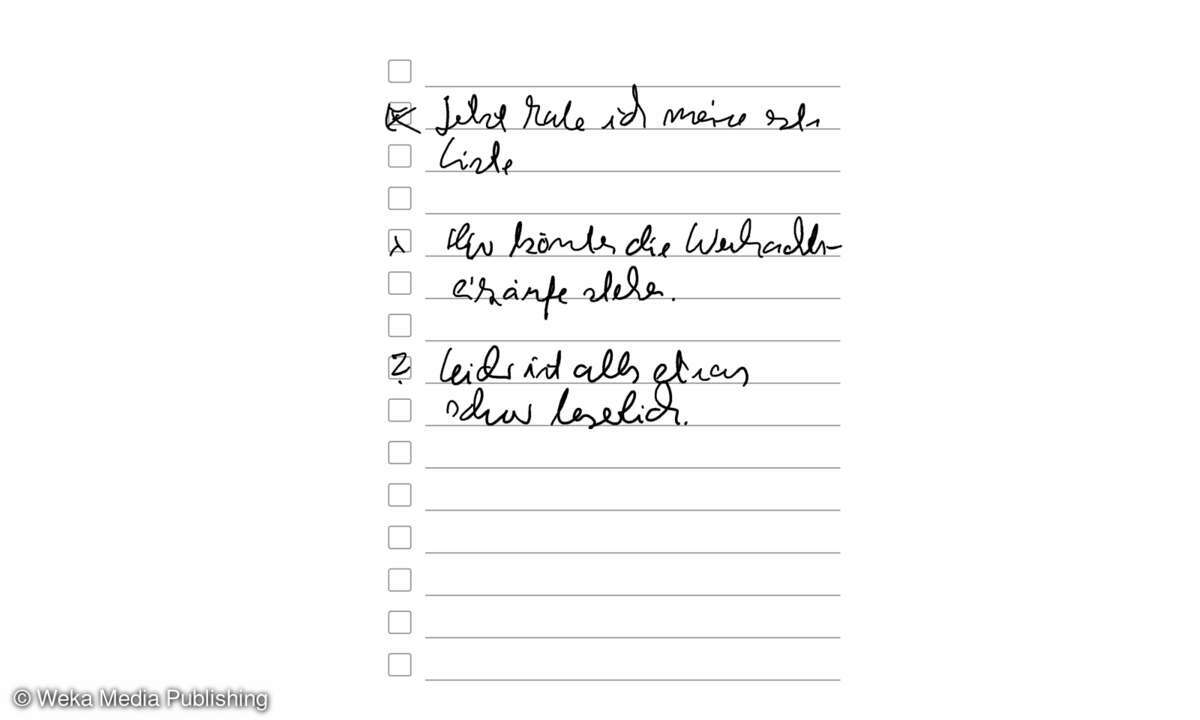 Jetzt habe ich meine erste
Liste
Hier könnten die Weihnachts-
einkäufe stehen.
?
Leider ist alles etwas
schwer leserlich.
© Weka Media Publishing